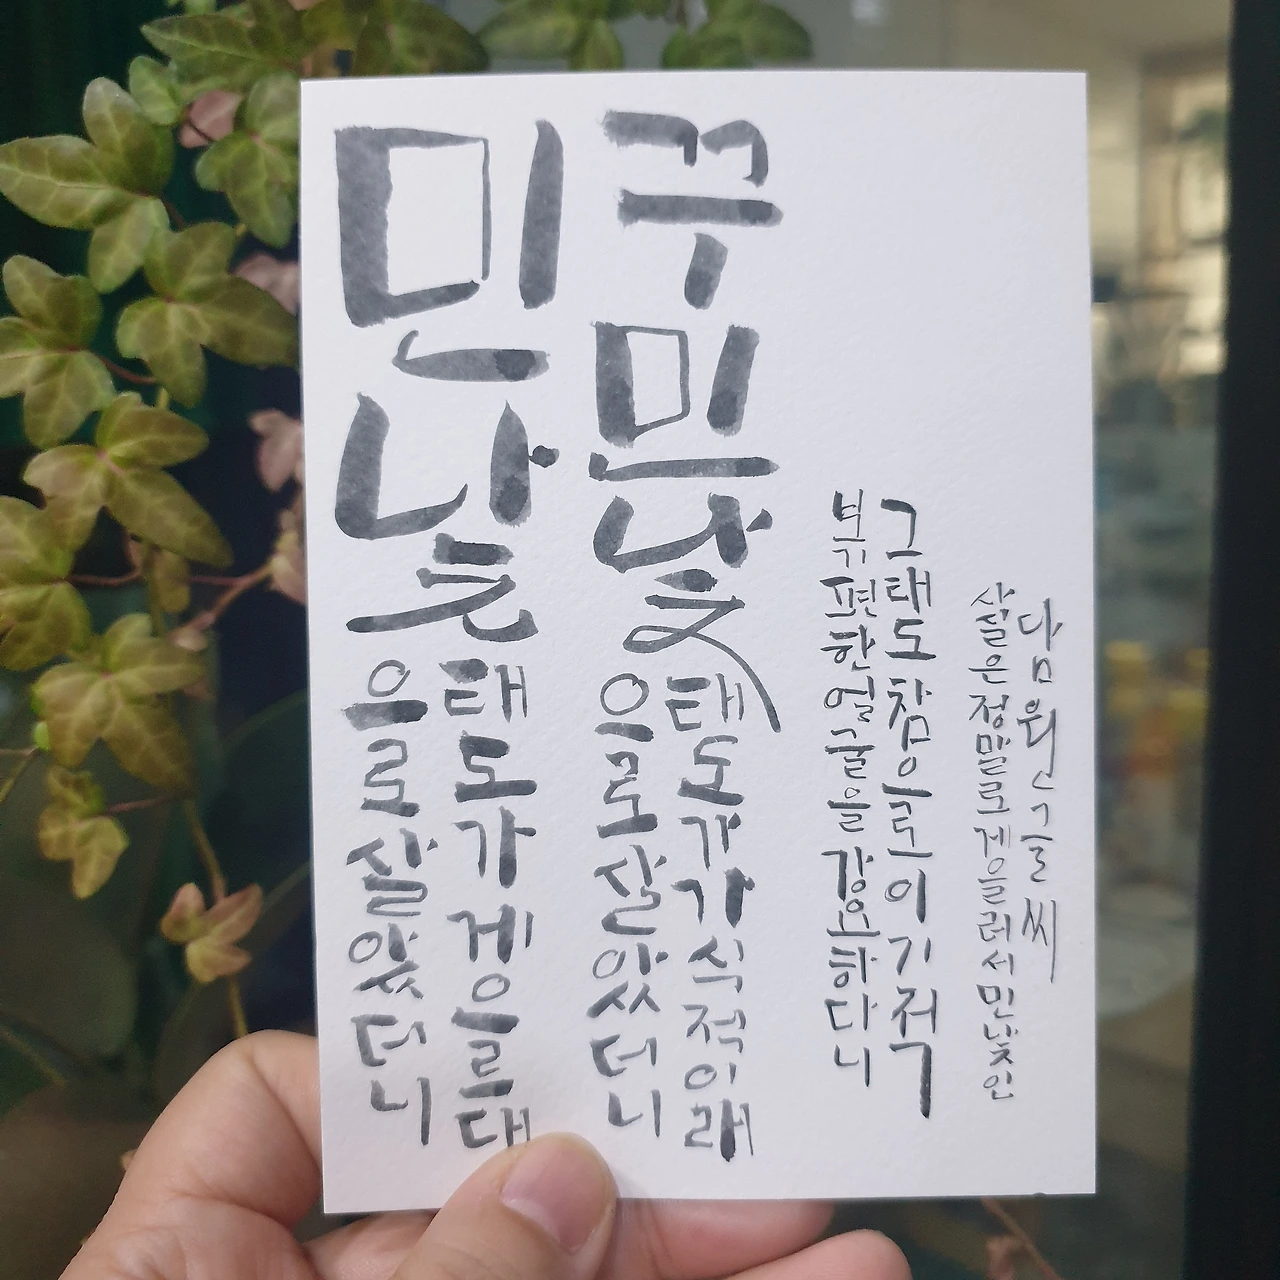 민낯으로 살았더니
태도가 게으르대
꾸민 낯으로 살았더니
태도가 가식적이래
보기 편한 얼굴을 강요하다니
그 태도 참으로 이기적
삶은 정말로 게을러서 민낯인
글씨